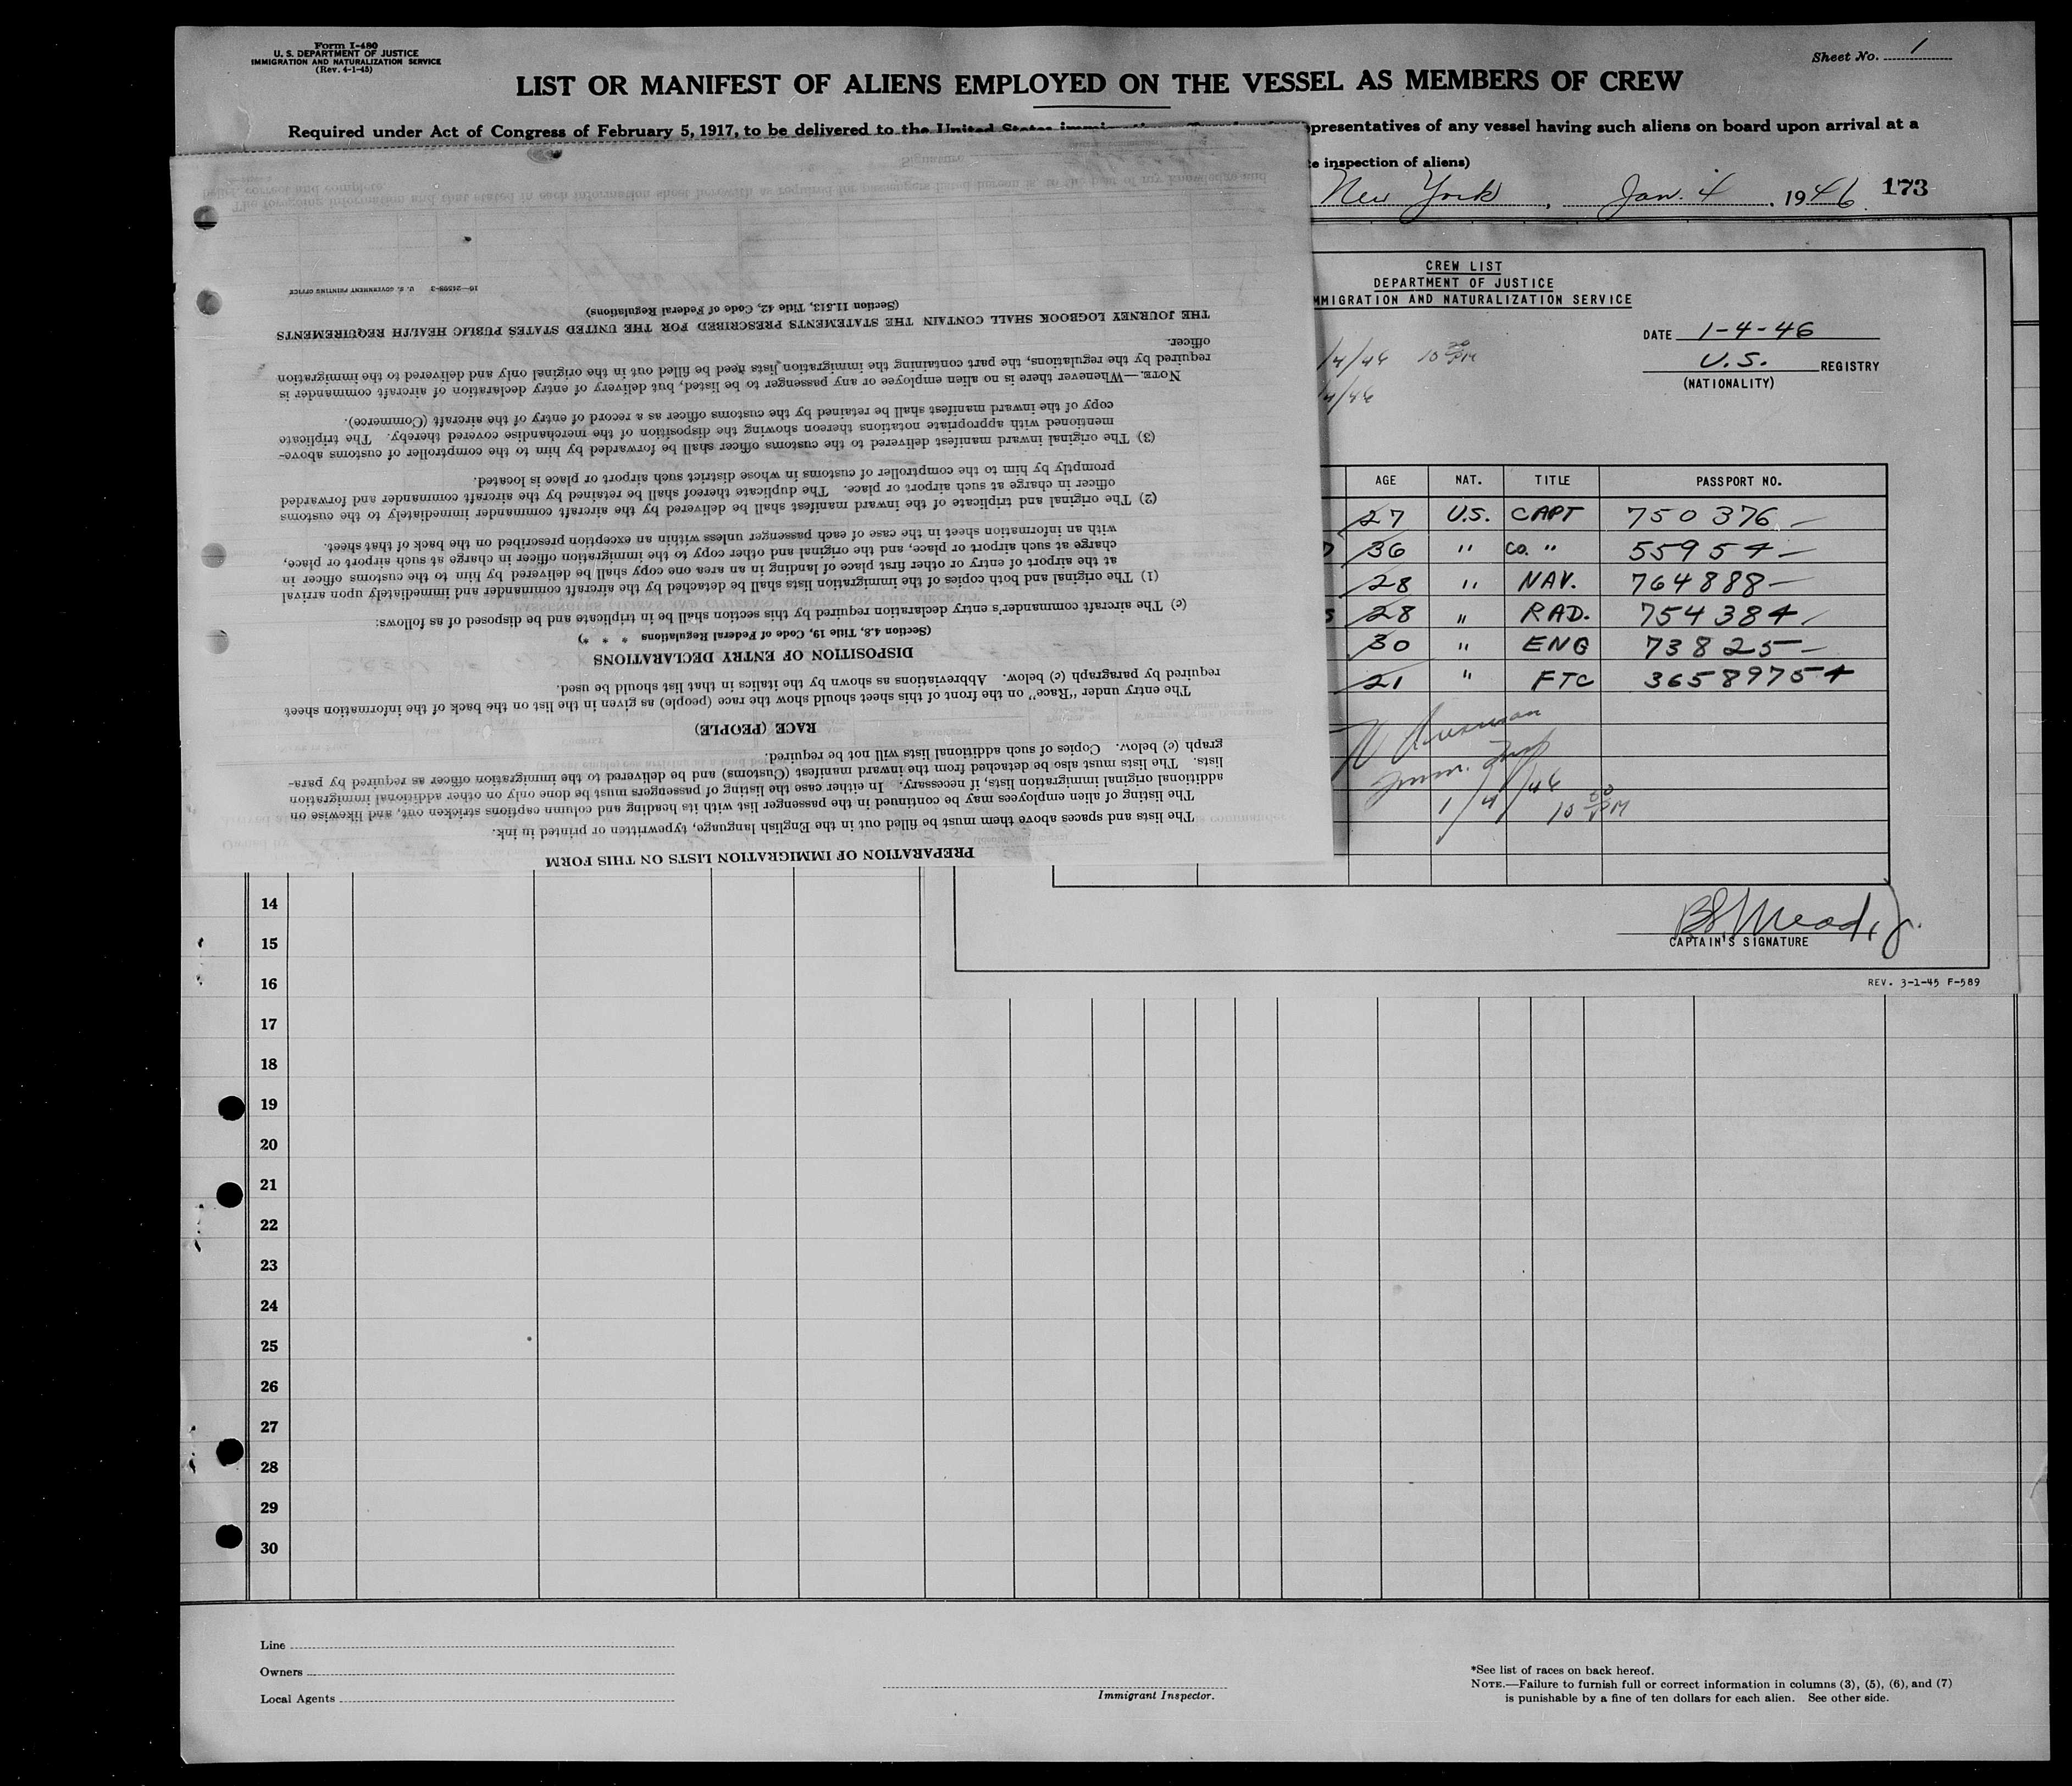 Form I-480
U. S. DEPARTMENT OF JUSTICE
IMMIGRATION AND NATURALIZATION SERVICE
(Rev. 4-1-45)
Sheet No. 1
LIST OR MANIFEST OF ALIENS EMPLOYED ON THE VESSEL AS MEMBERS OF CREW
Required under Act of Congress of February 5, 1917, to be delivered to the United States
representatives of any vessel having such aliens on board upon arrival at a
inspection of aliens)
New York, Jan. 4, 1946 173
PREPARATION OF IMMIGRATION LISTS ON THIS FORM
The lists and spaces above them must be filled out in the English language, typewritten or printed in ink.
The listing of alien employees may be continued in the passenger list with its heading and column captions stricken out, and likewise on
additional original immigration lists, if necessary. In either case the listing of passengers must be done only on other additional immigration
lists. The lists must also be detached from the inward manifest (Customs) and be delivered to the immigration officer as required by para-
graph (c) below. Copies of such additional lists will not be required.
RACE (PEOPLE)
The entry under "Race" on the front of this sheet should show the race (people) as given in the list on the back of the information sheet
required by paragraph (c) below. Abbreviations as shown by the italics in that list should be used.
DISPOSITION OF ENTRY DECLARATIONS
(Section 4.8, Title 19, Code of Federal Regulations * * *)
(c) The aircraft commander's entry declaration required by this section shall be in triplicate and be disposed of as follows:
(1) The original and both copies of the immigration lists shall be detached by the aircraft commander and immediately upon arrival
at the airport of entry or other first place of landing in an area one copy shall be delivered by him to the customs officer in
charge at such airport or place, and the original and other copy to the immigration officer in charge at such airport or place,
with an information sheet in the case of each passenger unless within an exception prescribed on the back of that sheet.
(2) The original and triplicate of the inward manifest shall be delivered by the aircraft commander immediately to the customs
officer in charge at such airport or place. The duplicate thereof shall be retained by the aircraft commander and forwarded
promptly by him to the comptroller of customs in whose district such airport or place is located.
(3) The original inward manifest delivered to the customs officer shall be forwarded by him to the comptroller of customs above-
mentioned with appropriate notations thereon showing the disposition of the merchandise covered thereby. The triplicate
copy of the inward manifest shall be retained by the customs officer as a record of entry of the aircraft (Commerce).
NOTE.—Whenever there is no alien employee or any passenger to be listed, but delivery of entry declaration of aircraft commander is
required by the regulations, the part containing the immigration lists need be filled out in the original only and delivered to the immigration
officer.
THE JOURNEY LOGBOOK SHALL CONTAIN THE STATEMENTS PRESCRIBED FOR THE UNITED STATES PUBLIC HEALTH REQUIREMENTS
(Section 11.513, Title 42, Code of Federal Regulations)
16—21598-3 U. S. GOVERNMENT PRINTING OFFICE
The foregoing information and that stated in each information sheet herewith as required for passengers listed herein is, to the best of my knowledge and
belief, correct and complete.
Signature
CREW LIST
DEPARTMENT OF JUSTICE
IMMIGRATION AND NATURALIZATION SERVICE
DATE 1-4-46
U.S. REGISTRY
(NATIONALITY)
/4/46 10 30 PM
/4/46
AGE NAT. TITLE PASSPORT NO.
27 U.S. CAPT 750376
36 " CO. " 55954
28 " NAV. 764888
28 " RAD. 754384
30 " ENG 73825
21 " FTC 36589754
1/4/46
10 30 PM
B S Mead, Jr.
CAPTAIN'S SIGNATURE
REV. 3-1-45 F-589
14
15
16
17
18
19
20
21
22
23
24
25
26
27
28
29
30
Line
Owners
Local Agents
Immigrant Inspector.
*See list of races on back hereof.
NOTE.—Failure to furnish full or correct information in columns (3), (5), (6), and (7)
is punishable by a fine of ten dollars for each alien. See other side.